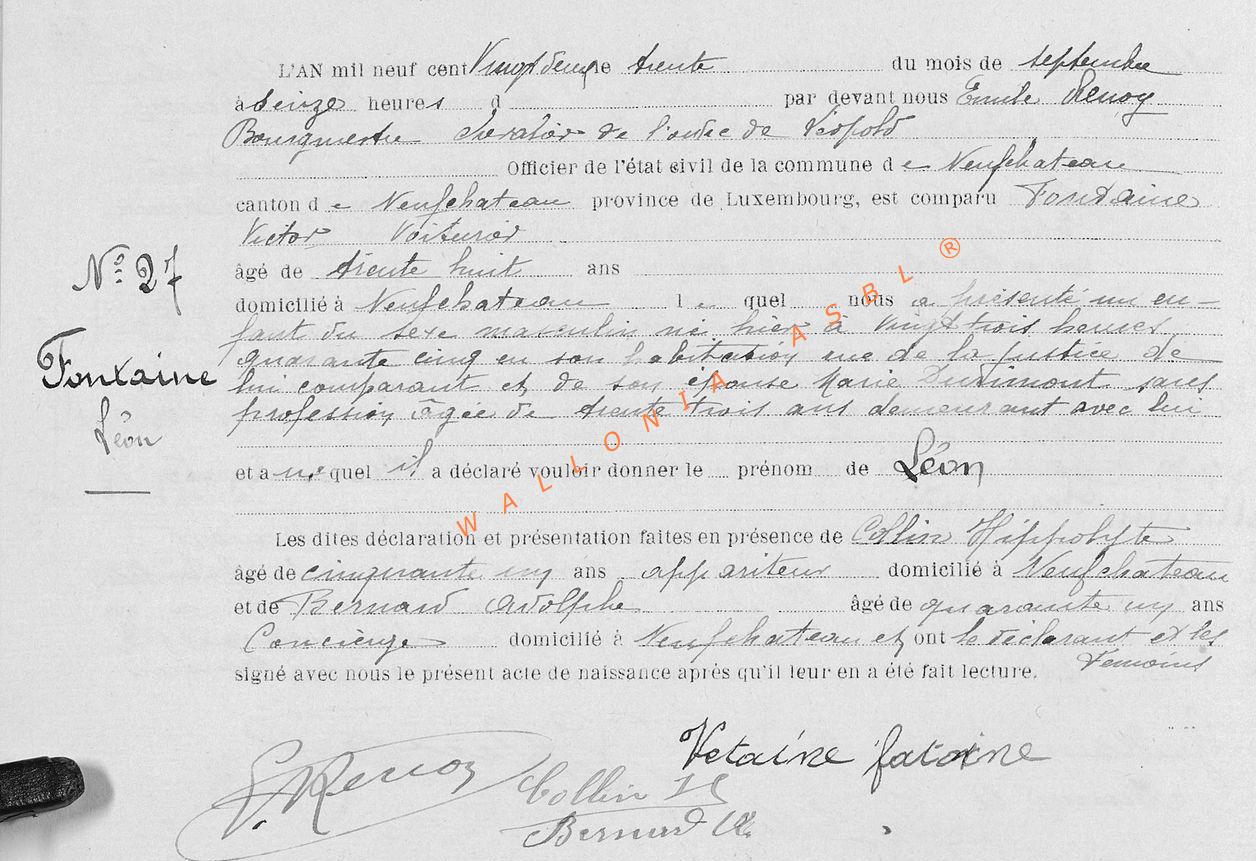 L'AN mil neuf cent Vingt deux le trente du mois de septembre
à seize heures d par devant nous Emile Renoy
Bourgmestre Chevalier de l'ordre de Léopold
Officier de l'état civil de la commune de Neufchateau
canton de Neufchateau province de Luxembourg, est comparu Fontaine
Victor Voiturier
âgé de trente huit ans
Nº 27
domicilié à Neufchateau lequel nous a présenté un en-
fant du sexe masculin né hier à vingt trois heures
quarante cinq en son habitation rue de la justice de
Fontaine
lui comparant et de son épouse Marie sans
profession, âgée de trente trois ans demeurant avec lui
Léon
et auquel il a déclaré vouloir donner le prénom de Léon
Les dites déclaration et présentation faites en présence de Collin Hippolyte
âgé de cinquante un ans appariteur domicilié à Neufchateau
et de Bernard Adolphe âgé de quarante un ans
Concierge domicilié à Neufchateau et ont le déclarant et les
témoins
signé avec nous le présent acte de naissance après qu'il leur en a été fait lecture.
E. Renoy
Collin H
Bernard
WALLONIA ASBL ®